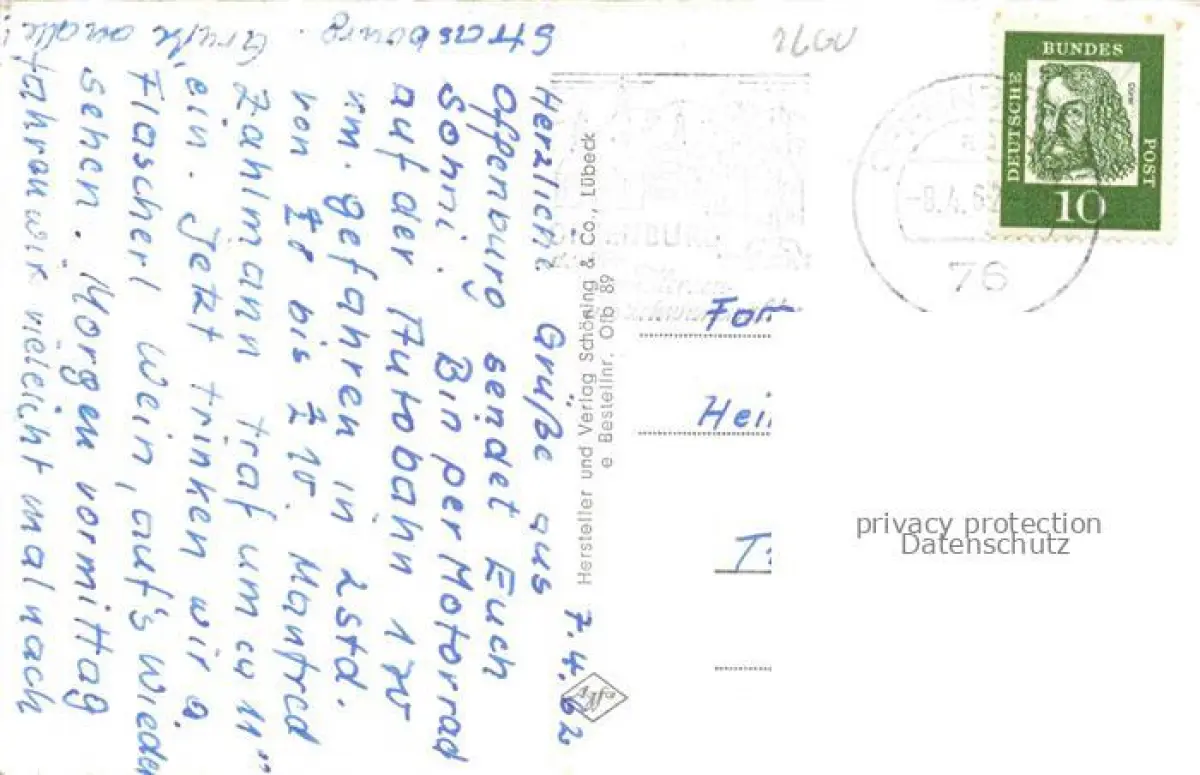 7.4.62
Herzlich Grüße aus
Offenburg sendet Euch
Sohni. Bin per Motorrad
auf der Autobahn 170
km. gefahren in 2 std.
von bis Manfred
Zahlmann traf um cy 11"
ein. Jetzt trinken wir a
Flascherl Wein, auf's Wieder
sehen. Morgen vormittag
fahren wir vieleicht mal nach
Strasbourg. Grüße an alle!
Hersteller und Verlag Schöning & Co., Lübeck
e Bestellnr. Ofb 89
Agfa
2600
DEUTSCHE
BUNDES
POST
10
OFFENBURG
-8.4.62
76
Fam
Hei
privacy protection
Datenschutz